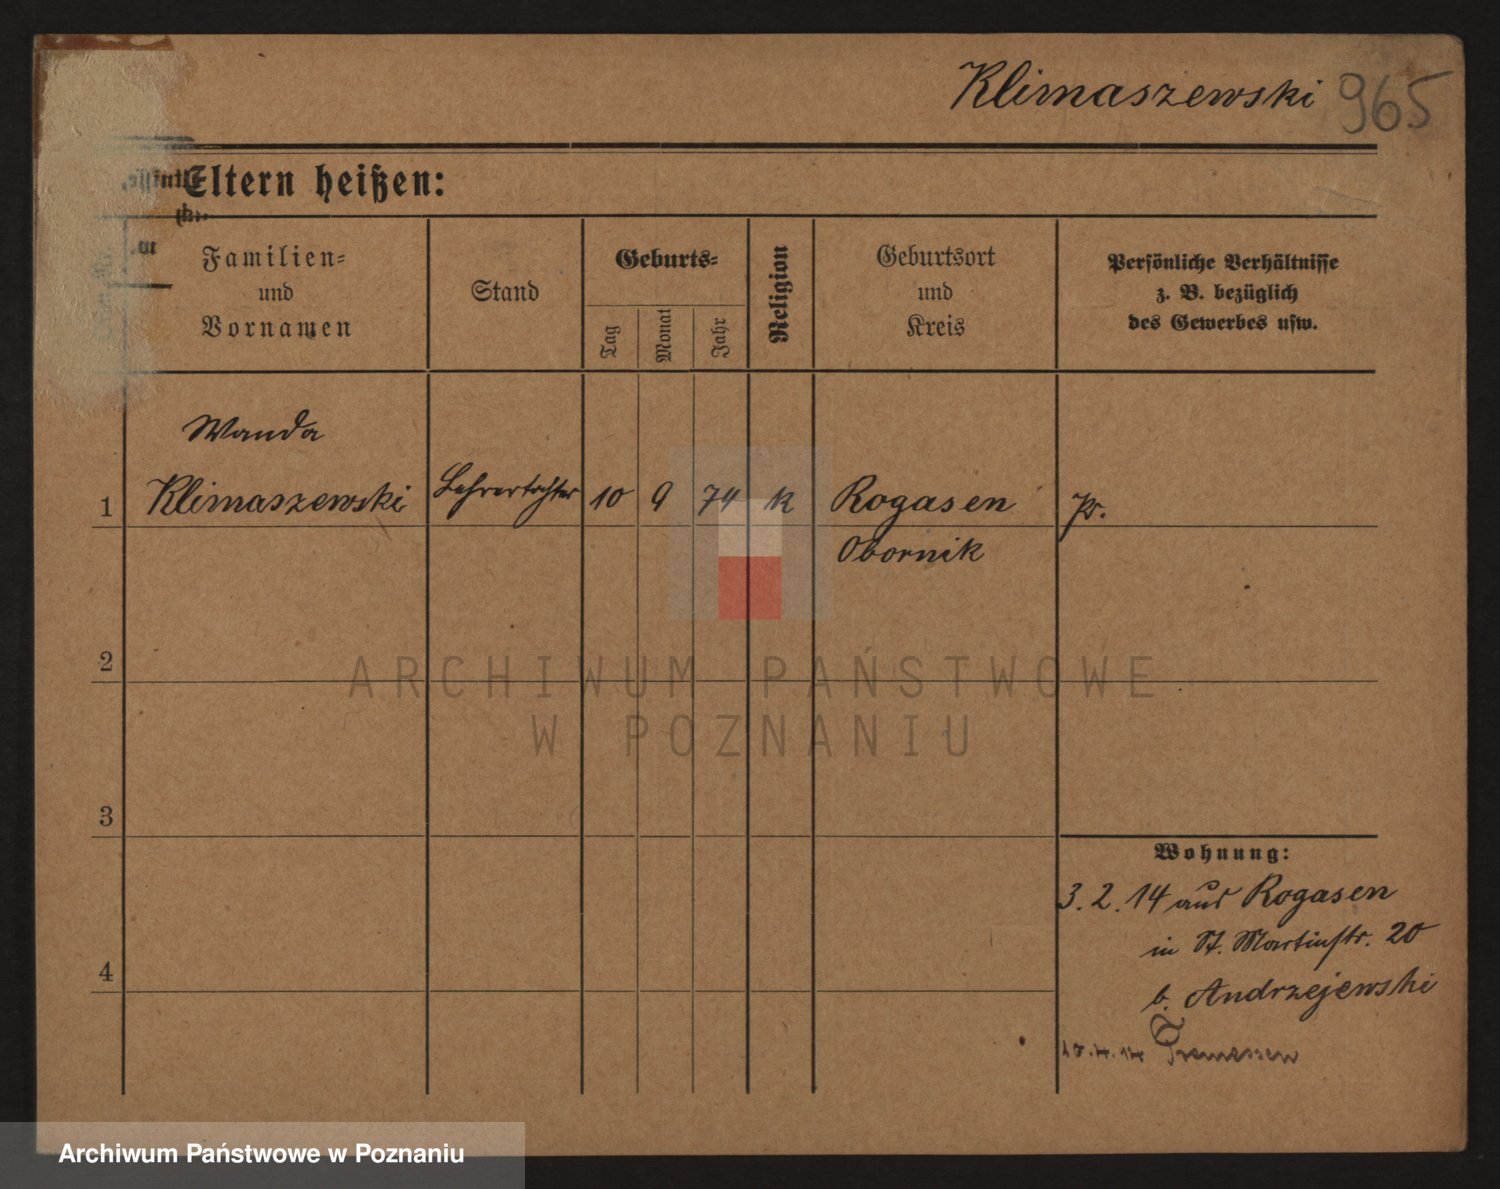 Klimaszewski 965
Eltern heißen:
Familien=
und
Vornamen
Stand
Geburts=
Tag
Monat
Jahr
Religion
Geburtsort
und
Kreis
Persönliche Verhältnisse
z. B. bezüglich
des Gewerbes usw.
Wanda
1 Klimaszewski Lehrertochter 10 9 74 k Rogasen pr.
Obornik
2
3
4
Wohnung:
3.2.14 aus Rogasen
in St. Martinstr. 20
b. Andrzejewski
Tremessen
ARCHIWUM PAŃSTWOWE
W POZNANIU
Archiwum Państwowe w Poznaniu